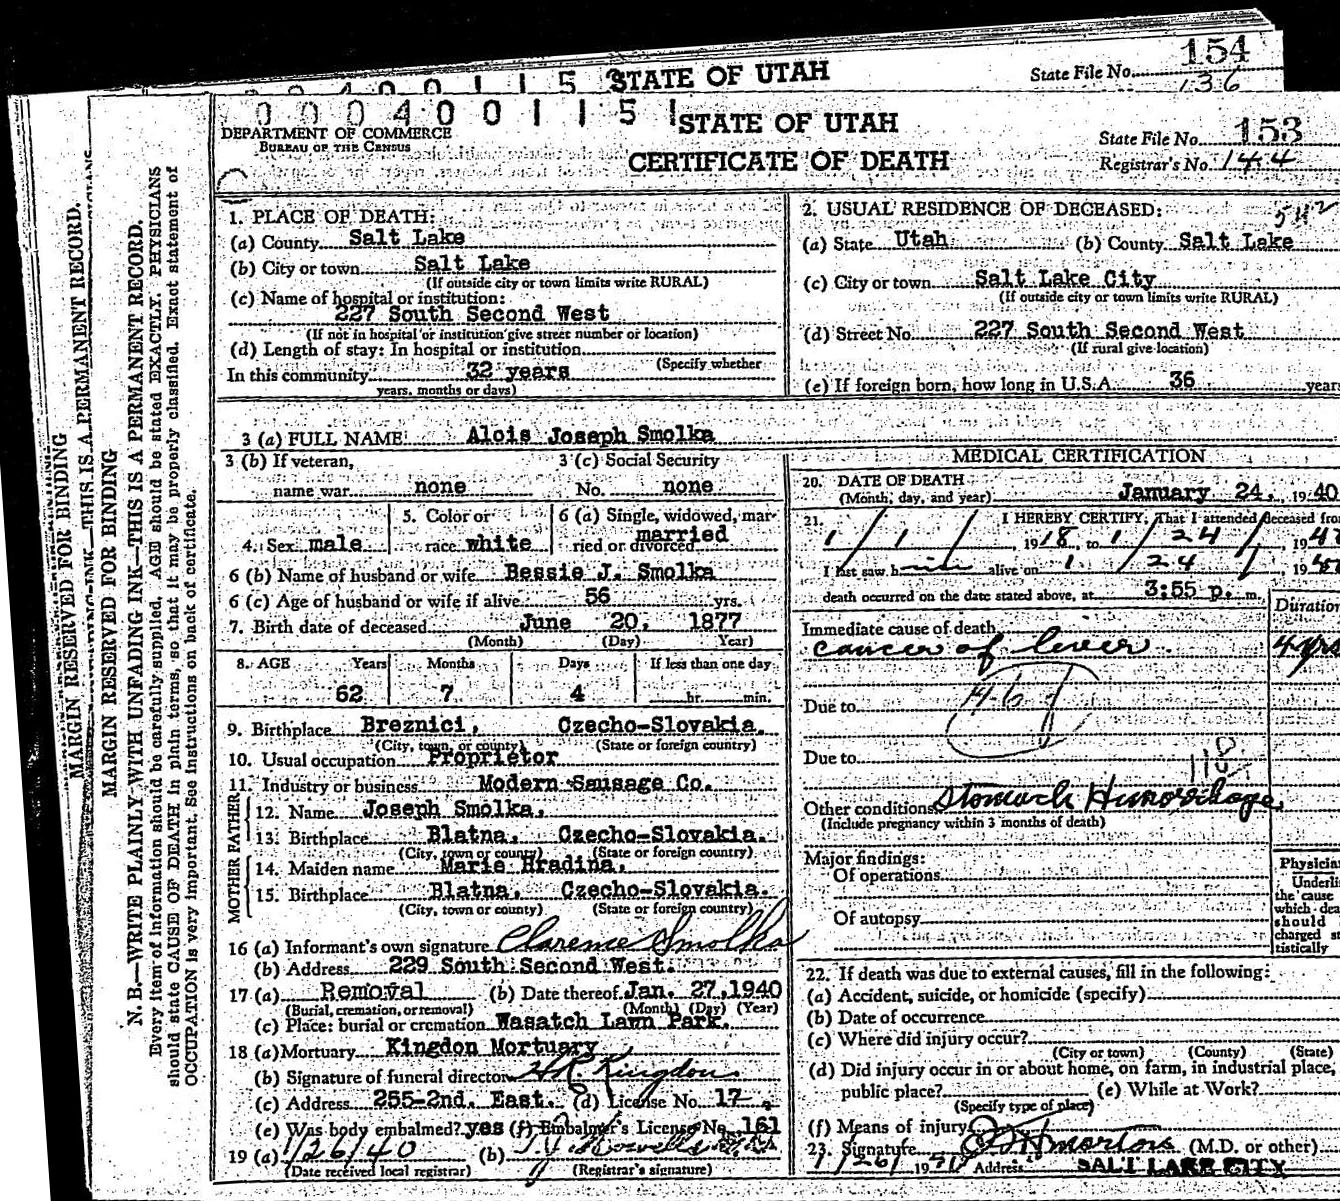 154
0 0 4 0 0 1 1 5 STATE OF UTAH
State File No.
136
0 0 0 4 0 0 1 1 5 1 STATE OF UTAH
DEPARTMENT OF COMMERCE
BUREAU OF THE CENSUS
CERTIFICATE OF DEATH
State File No. 153
Registrar's No. 144
MARGIN RESERVED FOR BINDING
THIS IS A PERMANENT RECORD.
MARGIN RESERVED FOR BINDING
N. B.—WRITE PLAINLY WITH UNFADING INK—THIS IS A PERMANENT RECORD.
Every item of information should be carefully supplied. AGE should be stated EXACTLY. PHYSICIANS
should state CAUSE OF DEATH in plain terms, so that it may be properly classified. Exact statement of
OCCUPATION is very important. See instructions on back of certificate.
1. PLACE OF DEATH:
(a) County Salt Lake
(b) City or town Salt Lake
(If outside city or town limits write RURAL)
(c) Name of hospital or institution:
227 South Second West
(If not in hospital or institution give street number or location)
(d) Length of stay: In hospital or institution
(Specify whether
In this community 32 years
years, months or days)
2. USUAL RESIDENCE OF DECEASED: 542
(a) State Utah (b) County Salt Lake
(c) City or town Salt Lake City
(If outside city or town limits write RURAL)
(d) Street No. 227 South Second West
(If rural give location)
(e) If foreign born, how long in U.S.A. 36 years
3 (a) FULL NAME: Alois Joseph Smolka
3 (b) If veteran,
name war none
3 (c) Social Security
No. none
4. Sex male
5. Color or
race white
6 (a) Single, widowed, mar-
ried or divorced married
6 (b) Name of husband or wife Bessie J. Smolka
6 (c) Age of husband or wife if alive 56 yrs.
7. Birth date of deceased June 20, 1877
(Month) (Day) Year)
8. AGE Years Months Days If less than one day
62 7 4 hr. min.
9. Birthplace Breznici, Czecho-Slovakia.
(City, town, or county) (State or foreign country)
10. Usual occupation Proprietor
11. Industry or business Modern Sausage Co.
FATHER
12. Name Joseph Smolka,
13. Birthplace Blatna, Czecho-Slovakia.
(City, town or county) (State or foreign country)
MOTHER
14. Maiden name Marie Hradina,
15. Birthplace Blatna, Czecho-Slovakia.
(City, town or county) (State or foreign country)
16 (a) Informant's own signature Clarence Smolka
(b) Address 229 South Second West.
17 (a) Removal (b) Date thereof Jan. 27, 1940
(Burial, cremation, or removal) (Month) (Day) (Year)
(c) Place: burial or cremation Wasatch Lawn Park.
18 (a) Mortuary Kingdon Mortuary
(b) Signature of funeral director Kingdon
(c) Address 255-2nd. East. (d) License No. 17
(e) Was body embalmed? yes (f) Embalmer's License No. 161
19 (a) 1/26/40 (b)
(Date received local registrar) (Registrar's signature)
MEDICAL CERTIFICATION
20. DATE OF DEATH
(Month, day, and year) January 24, 1940
21. I HEREBY CERTIFY, That I attended deceased from
1/1/, 1918, to 1/24/, 194
I last saw him alive on 1/24/, 19
death occurred on the date stated above, at 3:55 p. m.
Duration
Immediate cause of death
cancer of liver. 4 yrs
46
Due to
Due to
118
Other conditions Stomach Hemorrhage
(Include pregnancy within 3 months of death)
Major findings:
Of operations
Of autopsy
Physician
Underli
the cause
which dea
should
charged st
tistically
22. If death was due to external causes, fill in the following:
(a) Accident, suicide, or homicide (specify)
(b) Date of occurrence
(c) Where did injury occur?
(City or town) (County) (State)
(d) Did injury occur in or about home, on farm, in industrial place,
public place? (e) While at Work?
(Specify type of place)
(f) Means of injury
23. Signature (M.D. or other)
1/26/ 19 Address SALT LAKE CITY